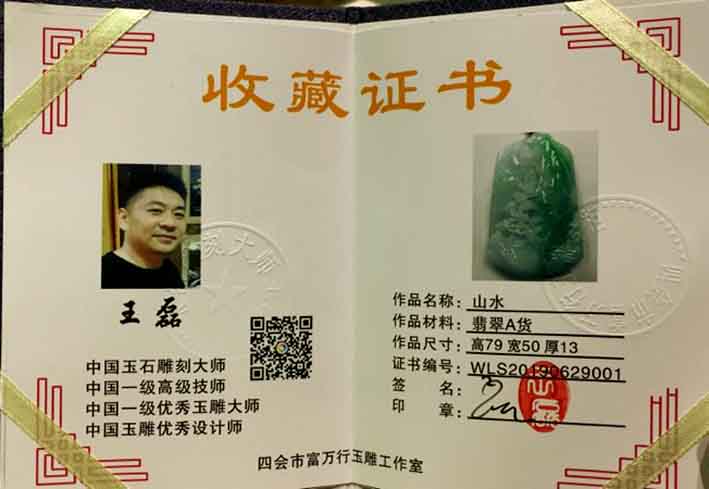 收藏证书
王磊
中国玉石雕刻大师
中国一级高级技师
中国一级优秀玉雕大师
中国玉雕优秀设计师
作品名称：山水
作品材料：翡翠A货
作品尺寸：高79 宽50 厚13
证书编号：WLS20190629001
签　名：
印　章：
四会市富万行玉雕工作室